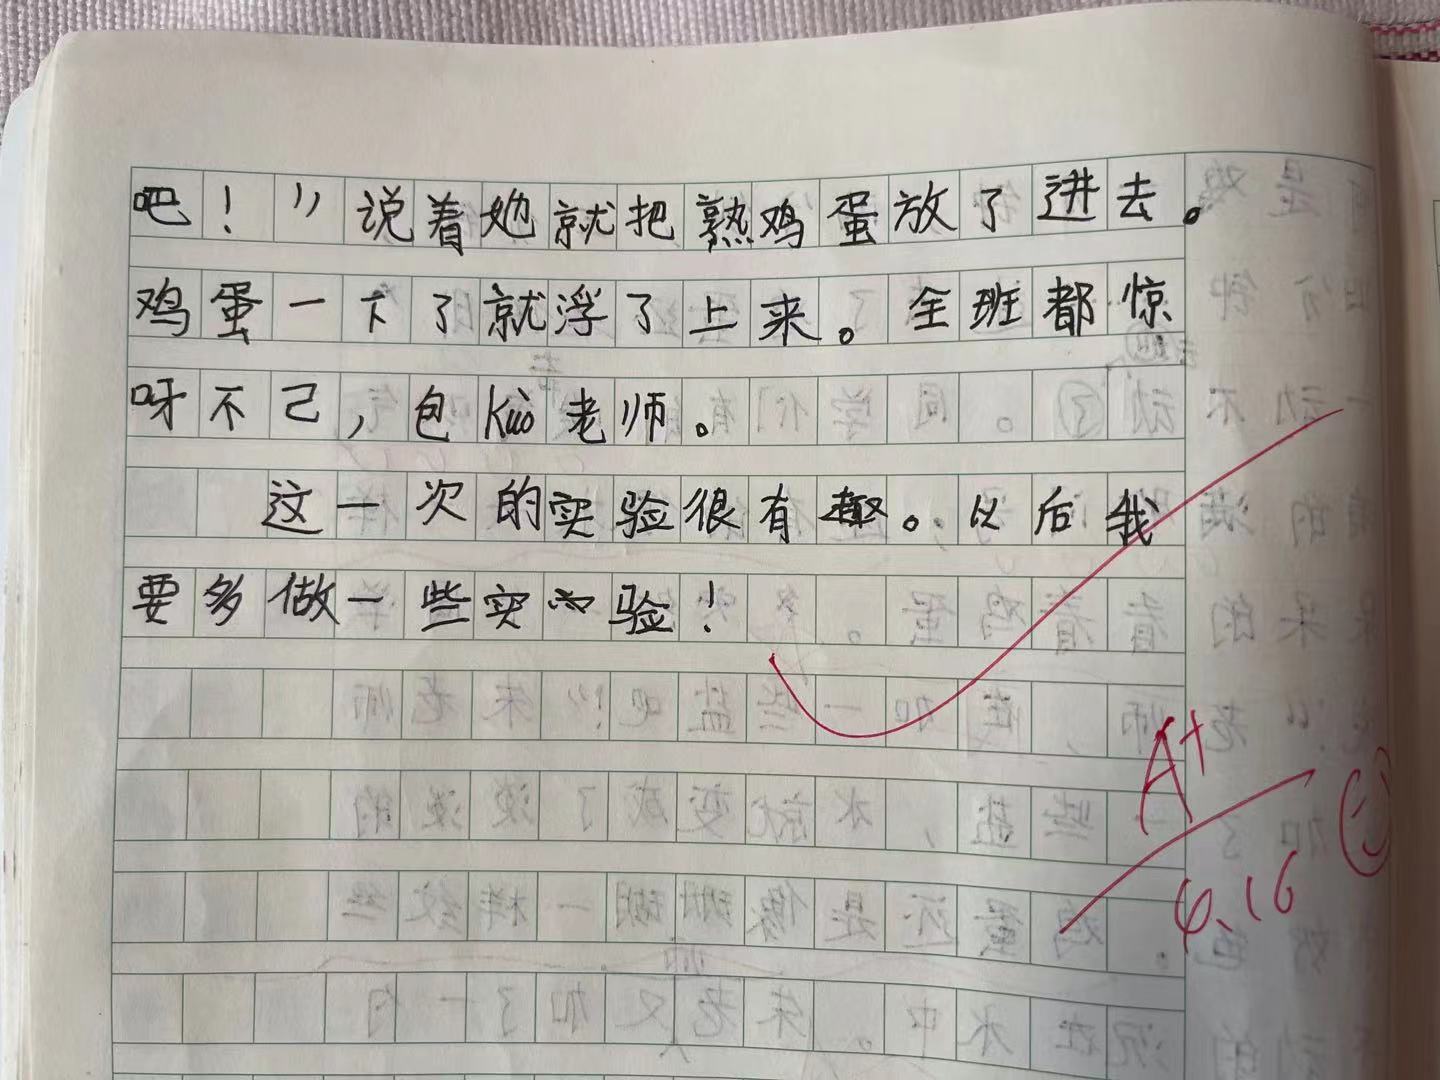 吧！”说着她就把熟鸡蛋放了进去。
鸡蛋一下了就浮了上来。全班都惊
呀不己，包Kuò老师。
这一次的实验很有趣。以后我
要多做一些实验！
A+
6.16